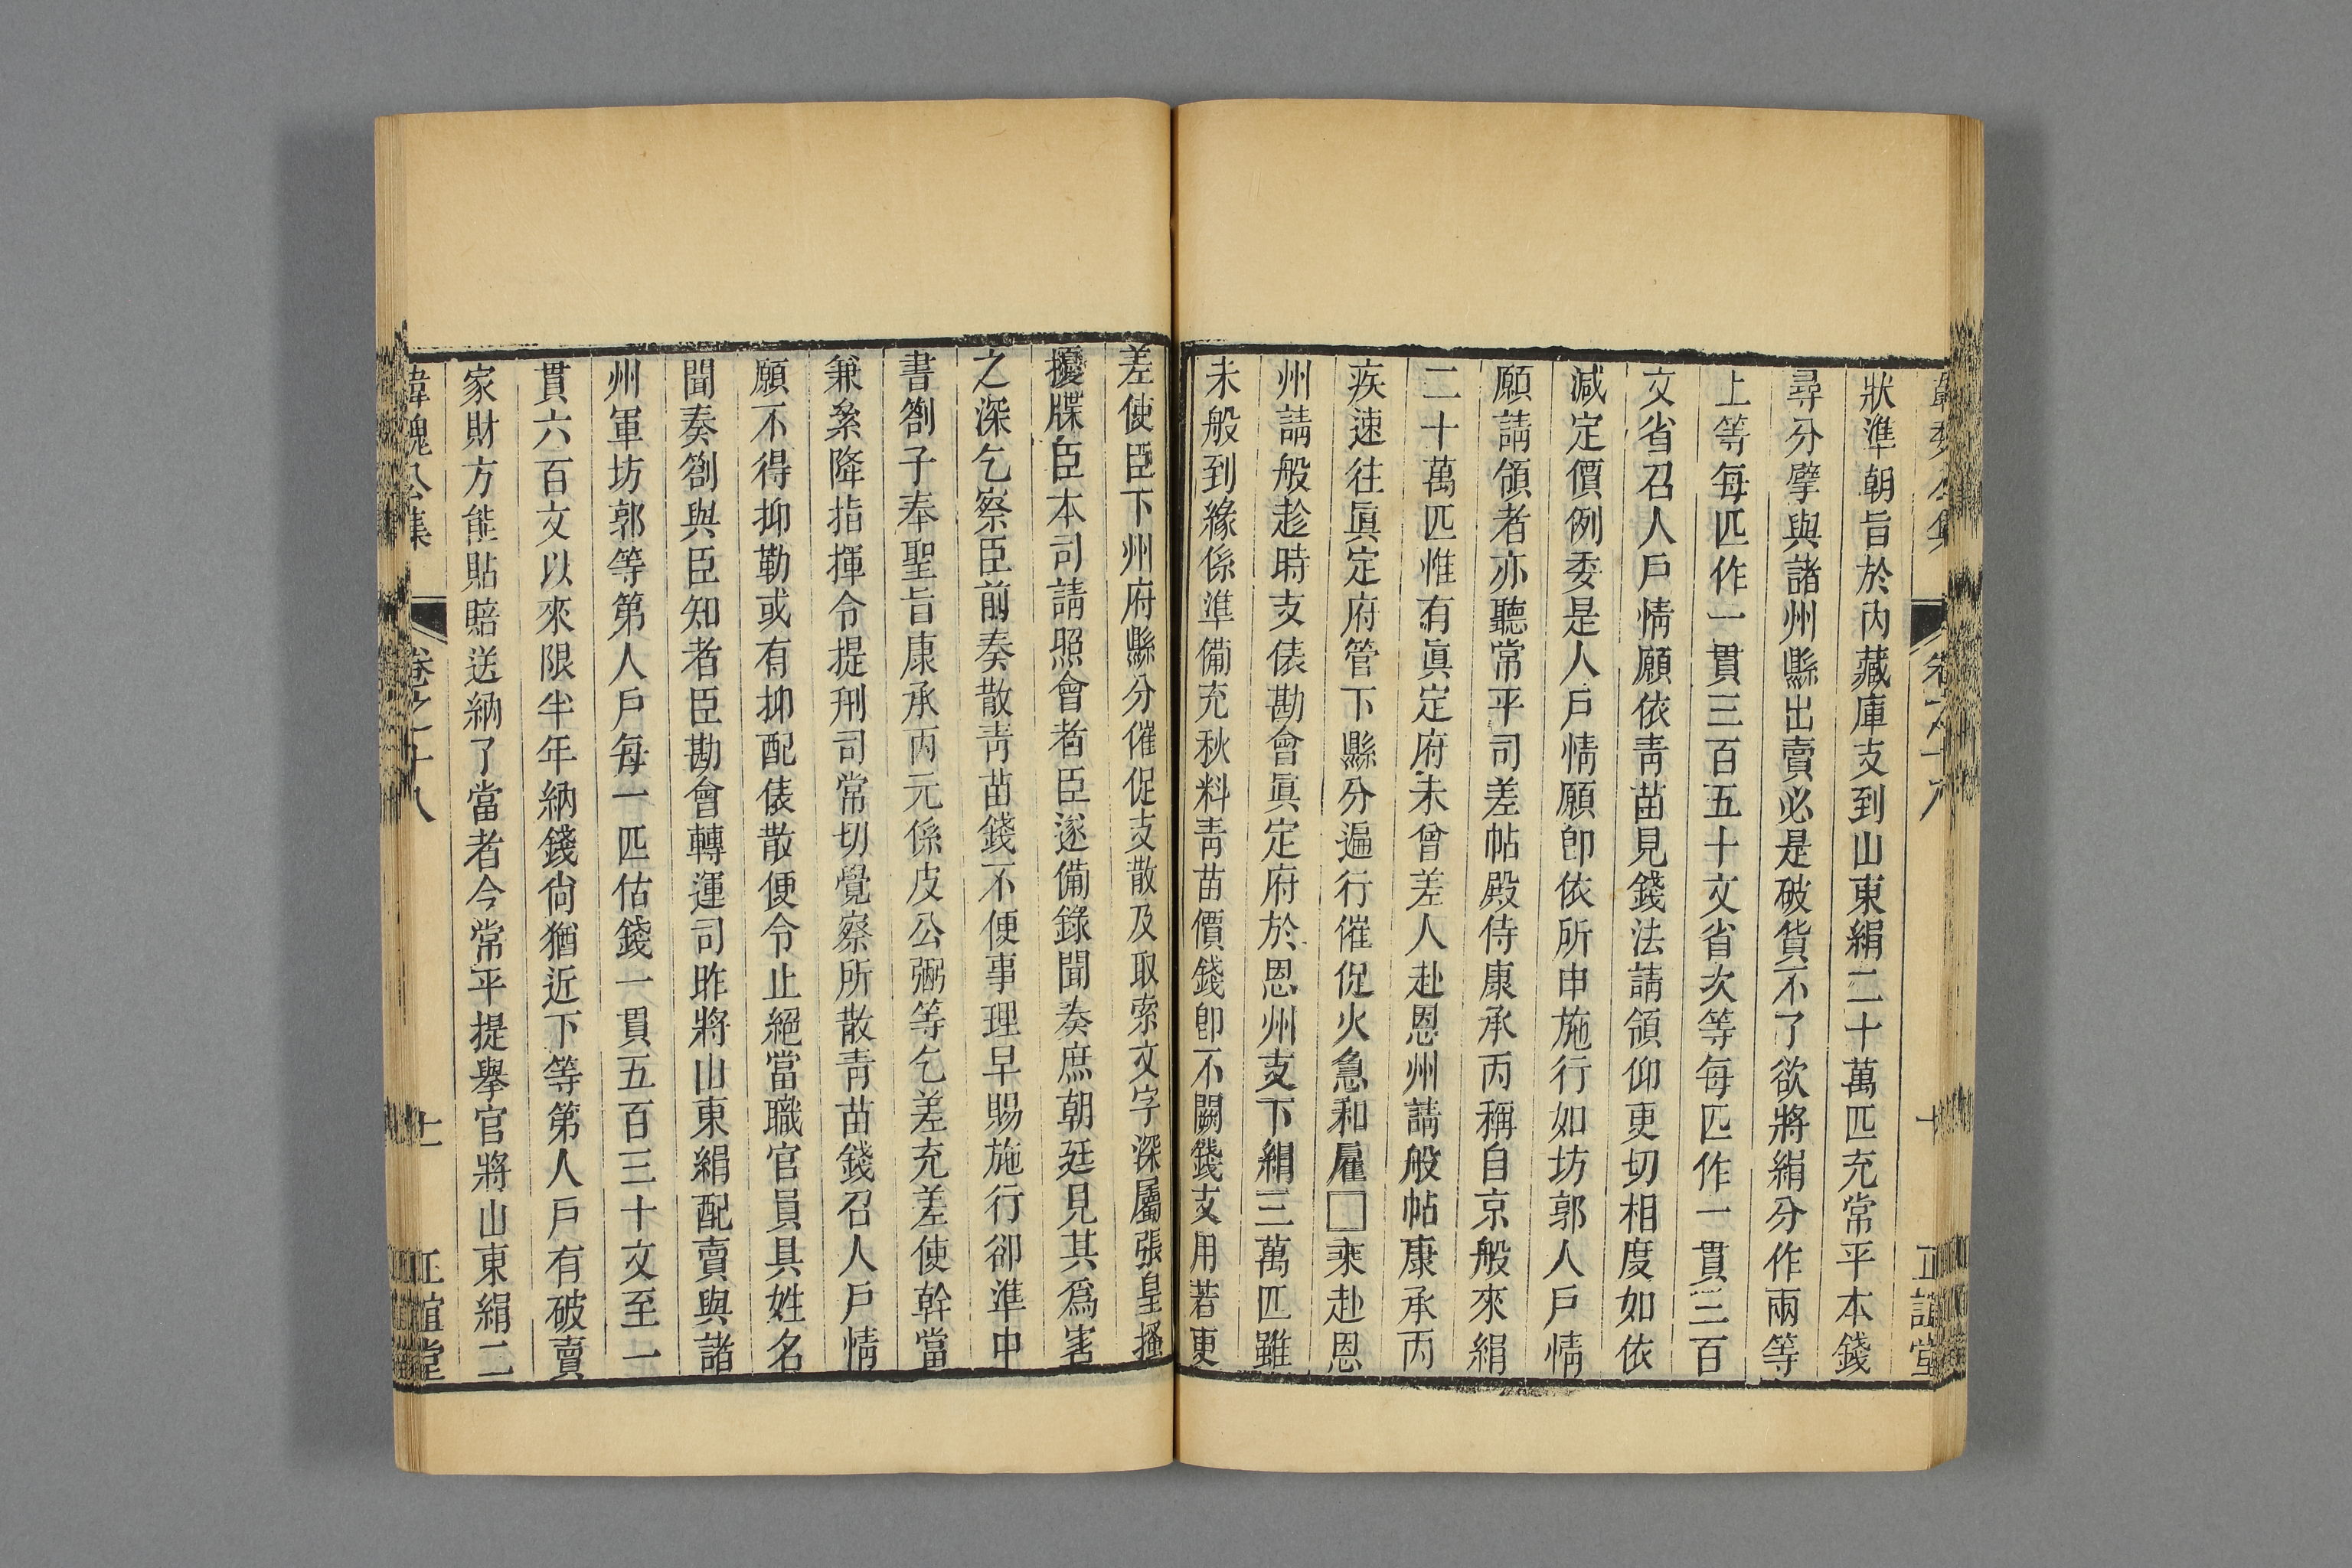 狀準朝旨於內藏庫支到山東絹二十萬匹充常平本錢
尋分擘與諸州縣出賣必是破貨不了欲將絹分作兩等
上等每匹作一貫三百五十文省次等每匹作一貫三百
文省召人戶情願依靑苗見錢法請領仰更切相度如依
減定價例委是人戶情願卽依所申施行如坊郭人戶情
願請領者亦聽常平司差帖殿侍康承丙稱自京般來絹
二十萬匹惟有眞定府未曾差人赴恩州請般帖康承丙
疾速往眞定府管下縣分遍行催促火急和雇□乘赴恩
州請般趁時支俵勘會眞定府於恩州支下絹三萬匹雖
未般到緣係準備充秋料靑苗價錢卽不闕錢支用若更
差使臣下州府縣分催促支散及取索文字深屬張皇搔
擾牒臣本司請照會者臣遂備錄聞奏庶朝廷見其爲害
之深乞察臣前奏散靑苗錢不便事理早賜施行卻準中
書劄子奉聖旨康承丙元係皮公弼等乞差充差使幹當
兼系降指揮令提刑司常切覺察所散靑苗錢召人戶情
願不得抑勒或有抑配俵散便令止絕當職官員具姓名
聞奏劄與臣知者臣勘會轉運司昨將山東絹配賣與諸
州軍坊郭等第人戶每一匹估錢一貫五百三十文至一
貫六百文以來限半年納錢尙猶近下等第人戶有破賣
家財方能貼賠送納了當者今常平提舉官將山東絹二
韓魏公集 卷之十八 十一 正誼堂